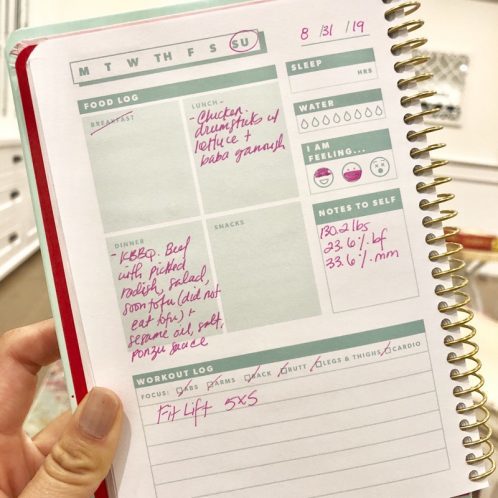 M T W TH F S SU
8 / 31 / 19
FOOD LOG
BREAKFAST
LUNCH -
- Chicken
drumsticks w/
lettuce +
baba ganoush
DINNER
- KBBQ. Beef
with pickled
radish, salad,
soon tofu (did not
eat tofu) +
sesame oil, salt,
ponzu sauce
SNACKS
SLEEP
HRS
WATER
I AM
FEELING...
NOTES TO SELF
130.2 lbs
23.6% bf
33.6% mm
WORKOUT LOG
FOCUS: ABS ARMS BACK BUTT LEGS & THIGHS CARDIO
Fit Lift 5x5